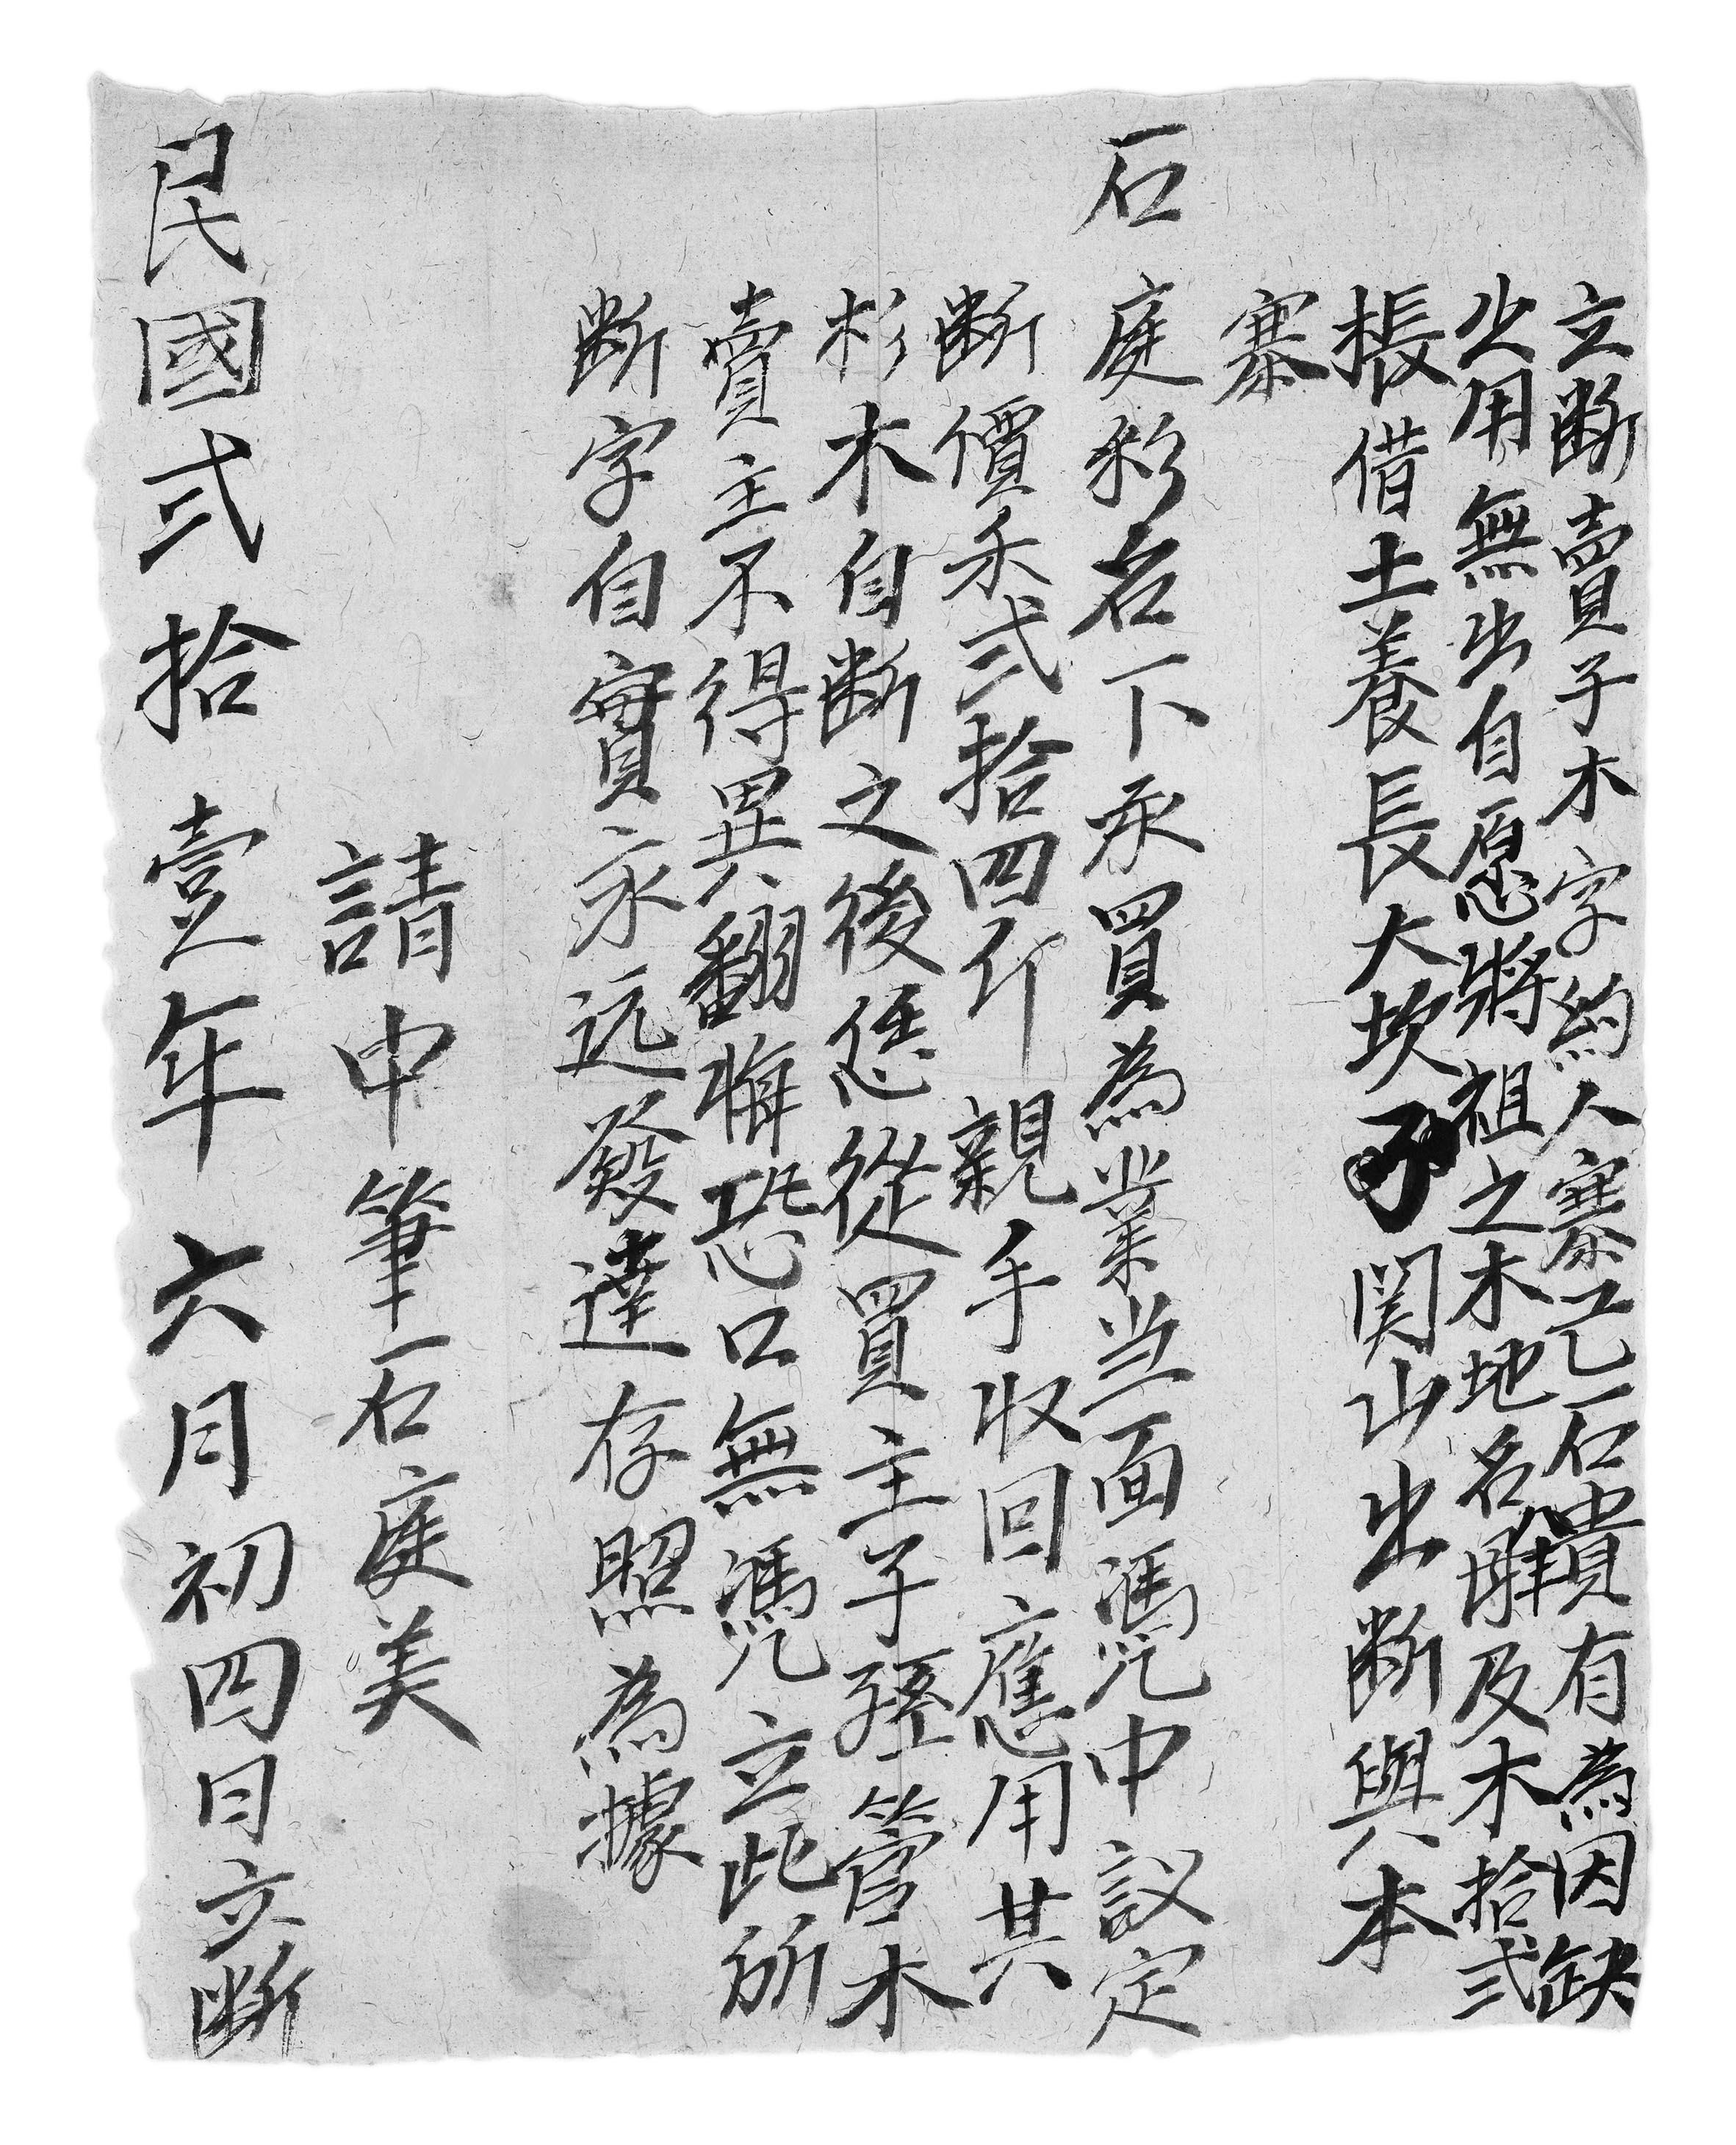 立断賣子木字約人寨元石貴有為因缺
少用無出自愿將祖之木地名及木拾弍
根借土養長大坎関山出断與本
寨
石庭彩名下承買為業当面凴中議定
断價禾弍拾四斤親手收回應用其
杉木自断之後任從買主子孫管木
賣主不得異翻悔恐口無凴立此所
断字自實永远發達存照為據
請中筆石庭美
民國弍拾壹年六月初四日立断